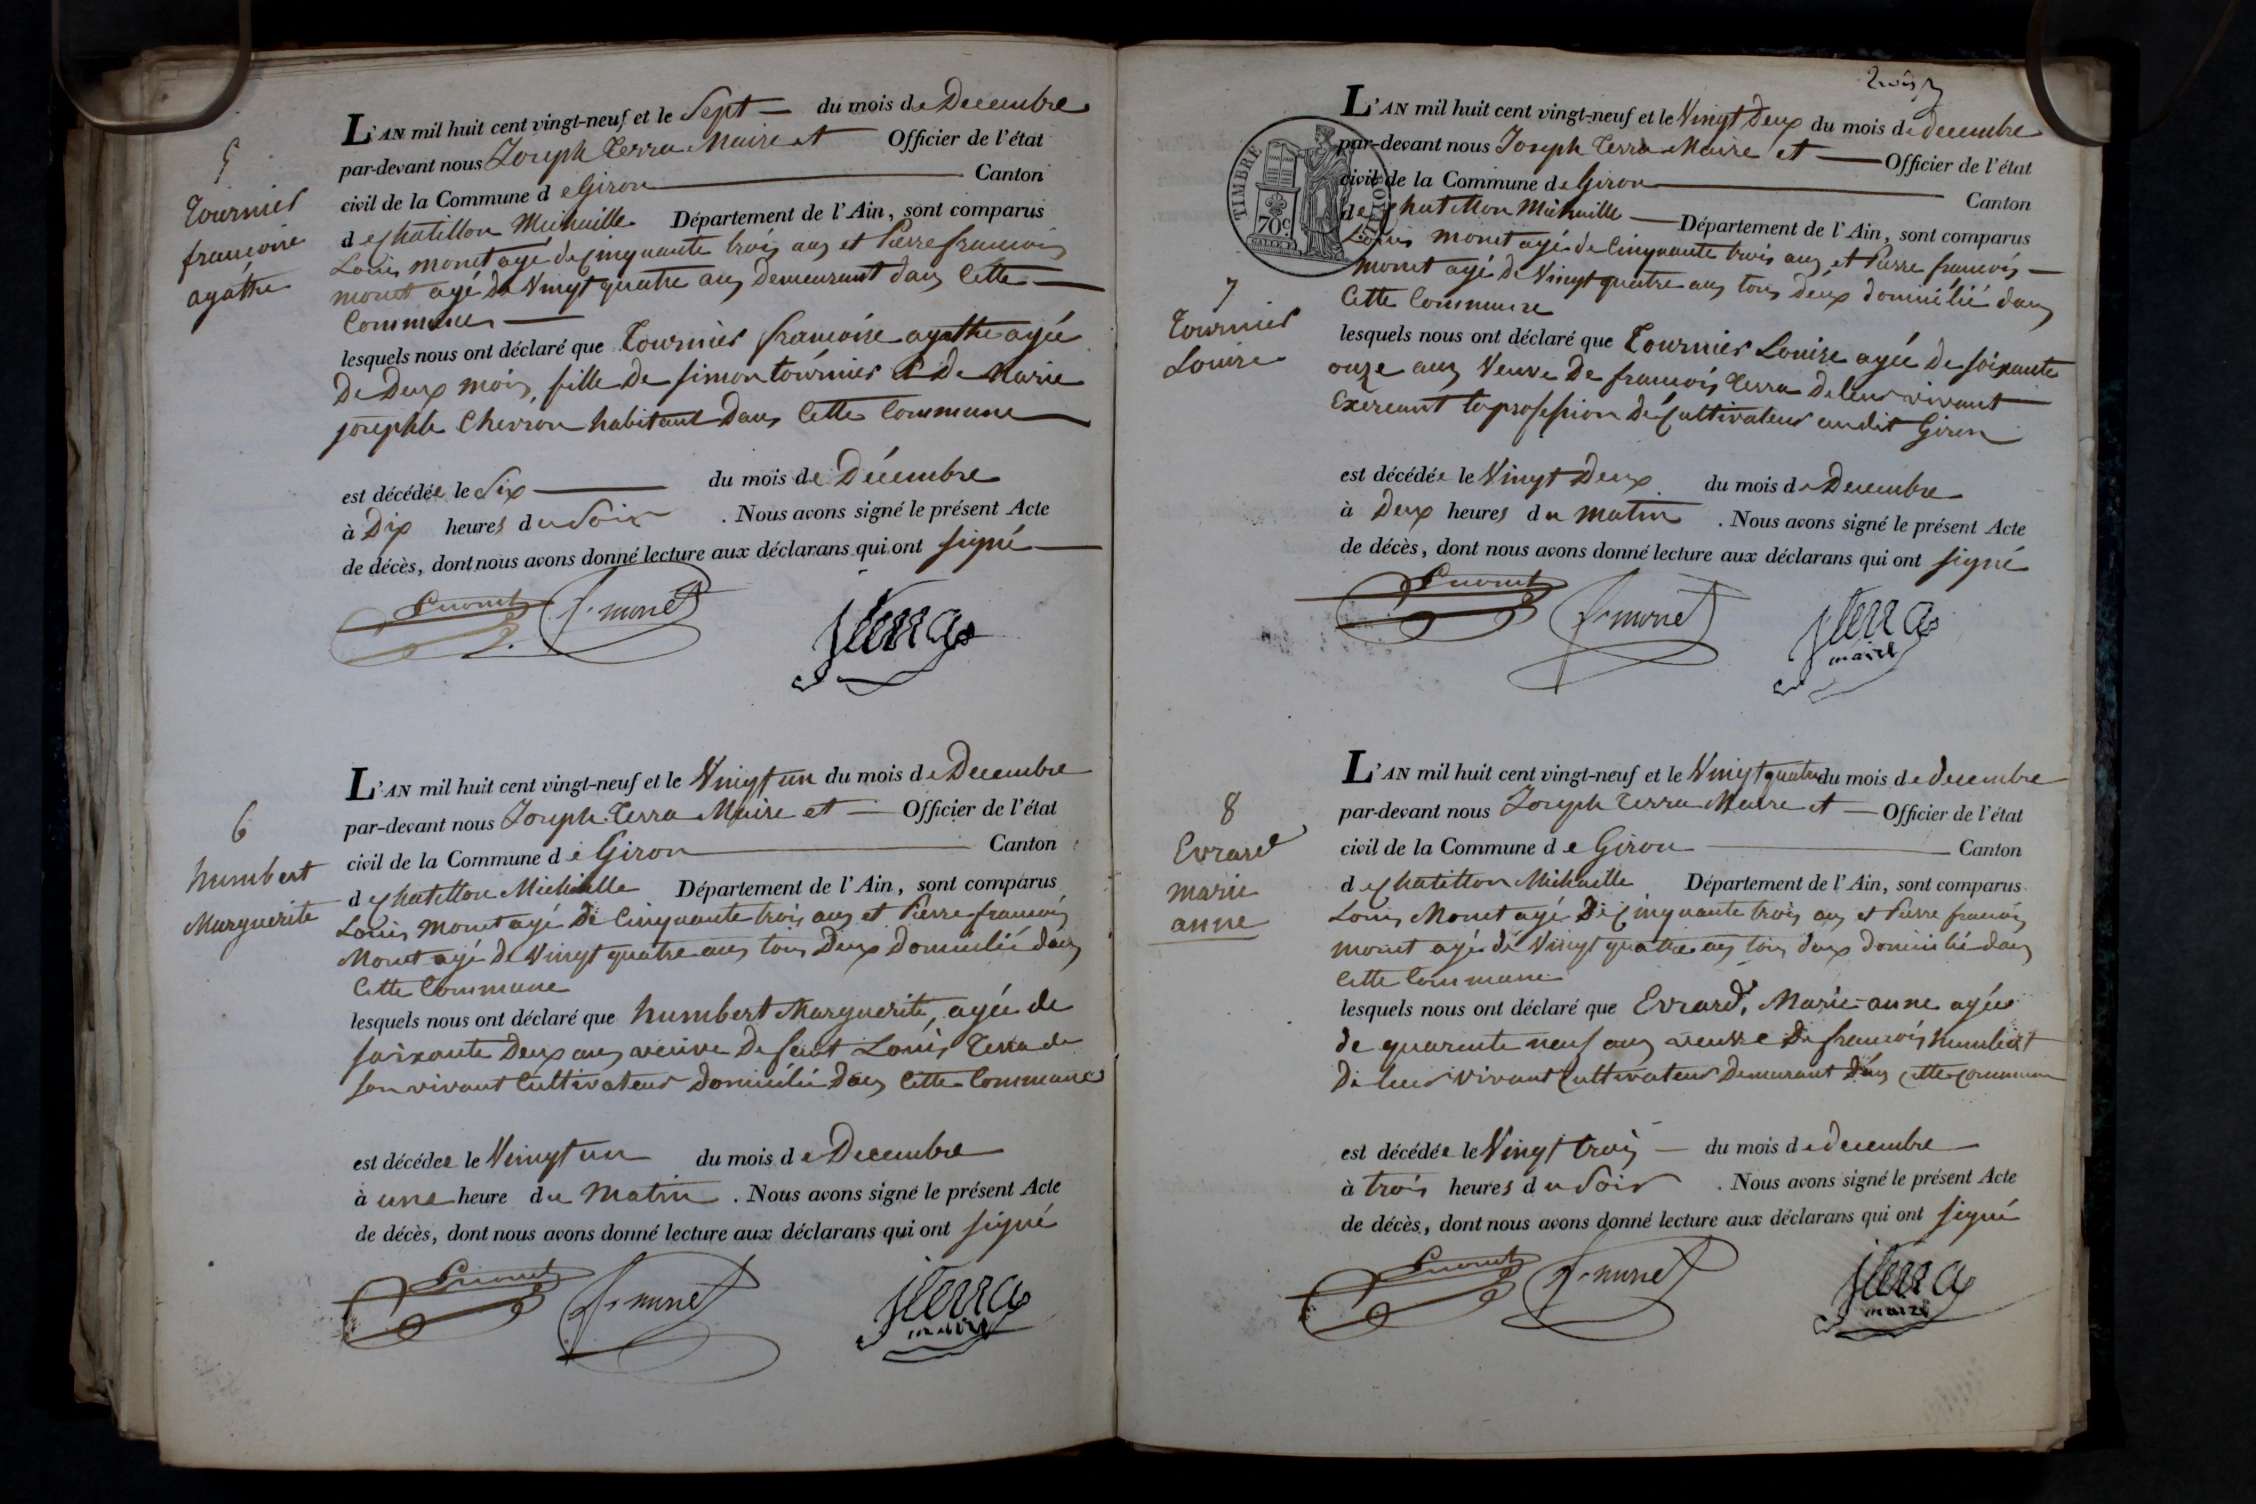 5
Tournier
françoise
agathe
L'AN mil huit cent vingt-neuf et le Sept du mois de Decembre
par-devant nous Joseph Terra Maire et Officier de l'état
civil de la Commune de Giron Canton
de Chatillon Michaille Département de l'Ain, sont comparus
Louis monet agé de Cinquante trois ans et Pierre francois
monet agé de Vingt quatre ans demeurant dans Cette
Commune
lesquels nous ont déclaré que Tournier francoise agathe agée
De Deux mois, fille de simon tournier et De Marie
josephte Chevron habitant Dans Cette Commune
est décédée le Six du mois de Décembre
à Dix heures du Soir . Nous avons signé le présent Acte
de décès, dont nous avons donné lecture aux déclarans qui ont signé
monet
monet
jterra
6
humbert
Marguerite
L'AN mil huit cent vingt-neuf et le Vingt un du mois de Decembre
par-devant nous Joseph Terra Maire et Officier de l'état
civil de la Commune de Giron Canton
de Chatillon Michaille Département de l'Ain, sont comparus
Louis monet agé De Cinquante trois ans et Pierre francois
Monet agé de Vingt quatre ans tous Deux Domicilié dans
Cette Commune
lesquels nous ont déclaré que humbert Marguerite, agée de
soixante Deux ans veuve De feut Louis Terra de
son vivant Cultivateur domicilié Dans Cette Commune
est décédée le Vingt un du mois de Decembre
à une heure du Matin . Nous avons signé le présent Acte
de décès, dont nous avons donné lecture aux déclarans qui ont signé
monet
monet
jterra
maire
trois
TIMBRE ROYAL
70c
7
Tournier
Louise
L'AN mil huit cent vingt-neuf et le Vingt Deux du mois de decembre
par-devant nous Joseph Terra Maire et Officier de l'état
civil de la Commune de Giron Canton
de Chatillon Michaille Département de l'Ain, sont comparus
Louis monet agé de Cinquante trois ans et Pierre francois
monet agé de Vingt quatre ans tous deux domicilié dans
Cette Commune
lesquels nous ont déclaré que Tournier Louise agée de soixante
onze ans Veuve De francois Terra De leur vivant
Exercant la profession de Cultivateur audit Giron
est décédée le Vingt Deux du mois de Decembre
à Deux heures du matin . Nous avons signé le présent Acte
de décès, dont nous avons donné lecture aux déclarans qui ont signé
monet
monet
jterra
maire
8
Evrard
marie
anne
L'AN mil huit cent vingt-neuf et le Vingt quatre du mois de decembre
par-devant nous Joseph Terra Maire et Officier de l'état
civil de la Commune de Giron Canton
de Chatillon Michaille Département de l'Ain, sont comparus
Louis Monet agé De Cinquante trois ans et Pierre francois
monet agé de Vingt quatre ans tous deux domicilié dans
Cette Commune
lesquels nous ont déclaré que Evrard, Marie-anne agée
de quarente neuf ans veuve De francois humbert
De leur vivant Cultivateur Demeurant dans cette Commune
est décédée le Vingt trois du mois de decembre
à trois heures du Soir . Nous avons signé le présent Acte
de décès, dont nous avons donné lecture aux déclarans qui ont signé
monet
monet
jterra
maire